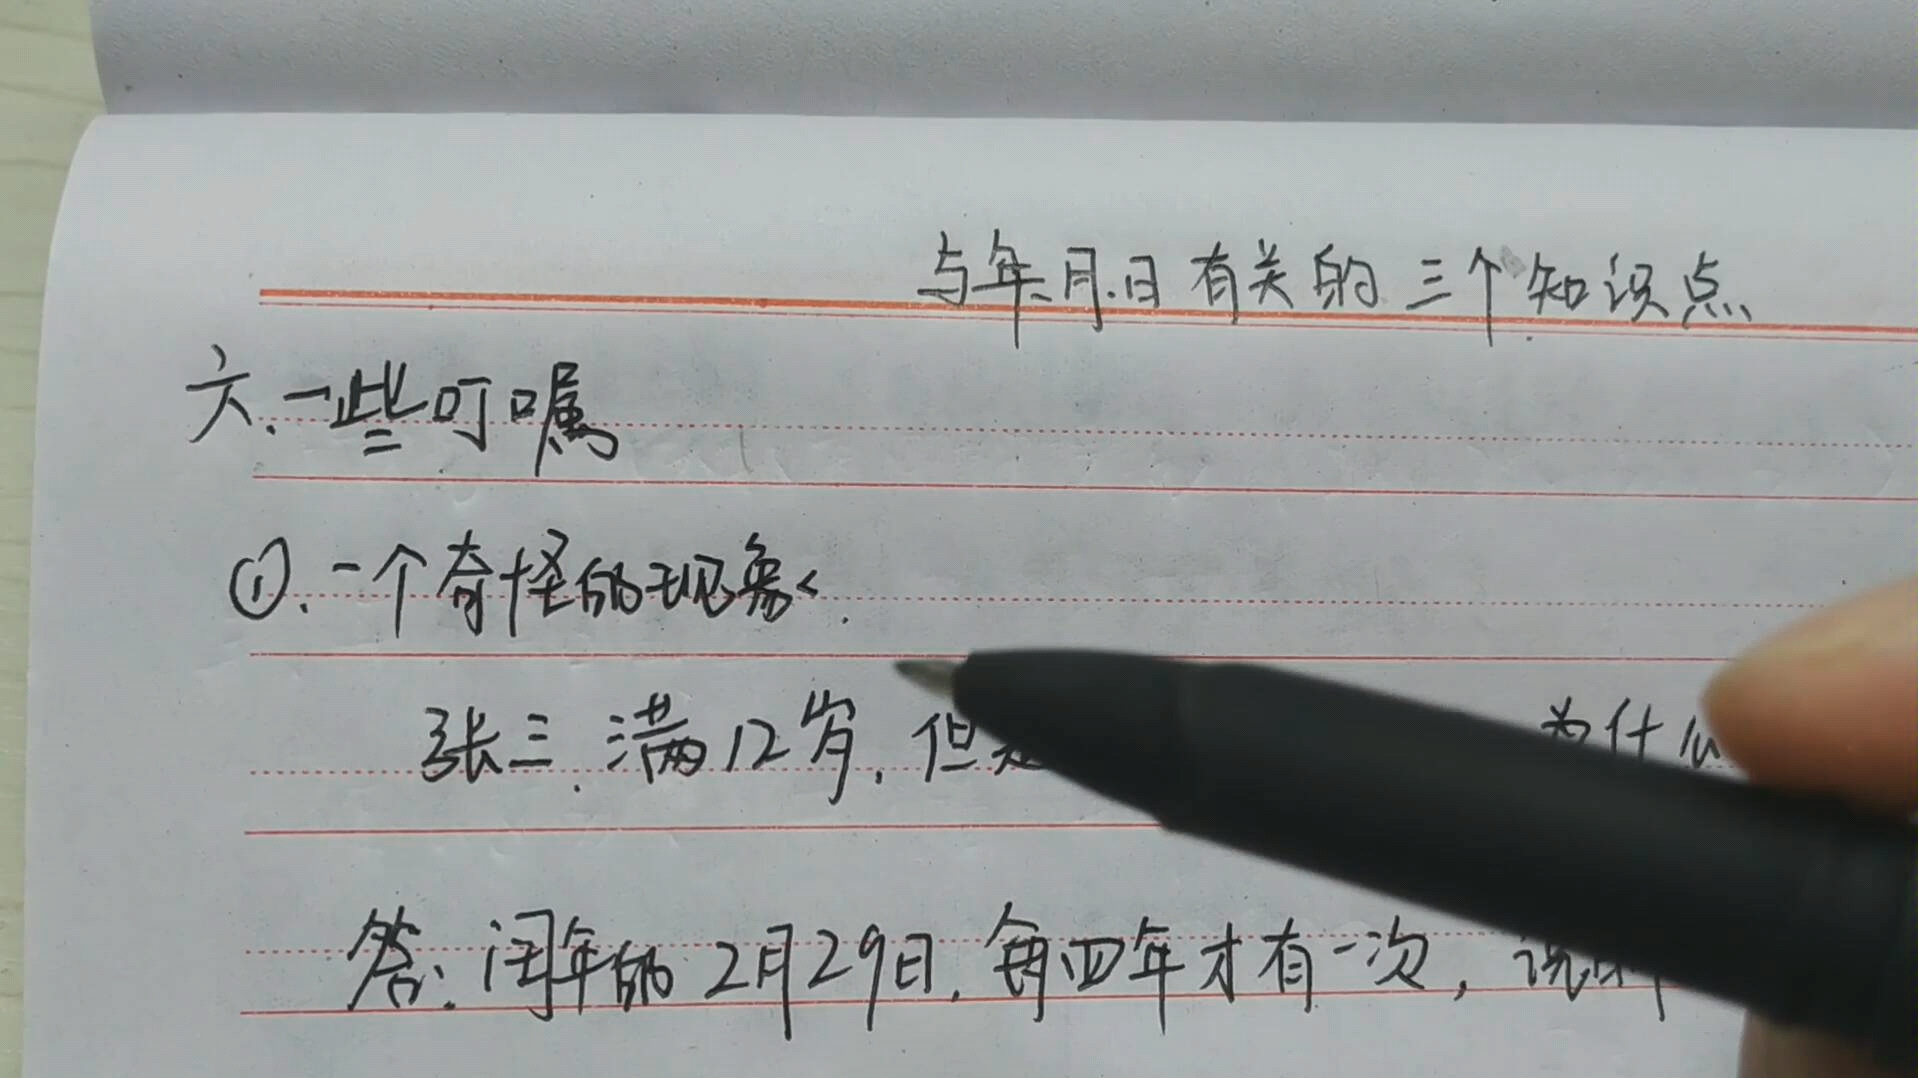 与年.月.日有关的三个知识点
六.一些叮嘱
①.一个奇怪的现象.
张三.满12岁,但是 为什么
答:闰年的2月29日.每四年才有一次,说明